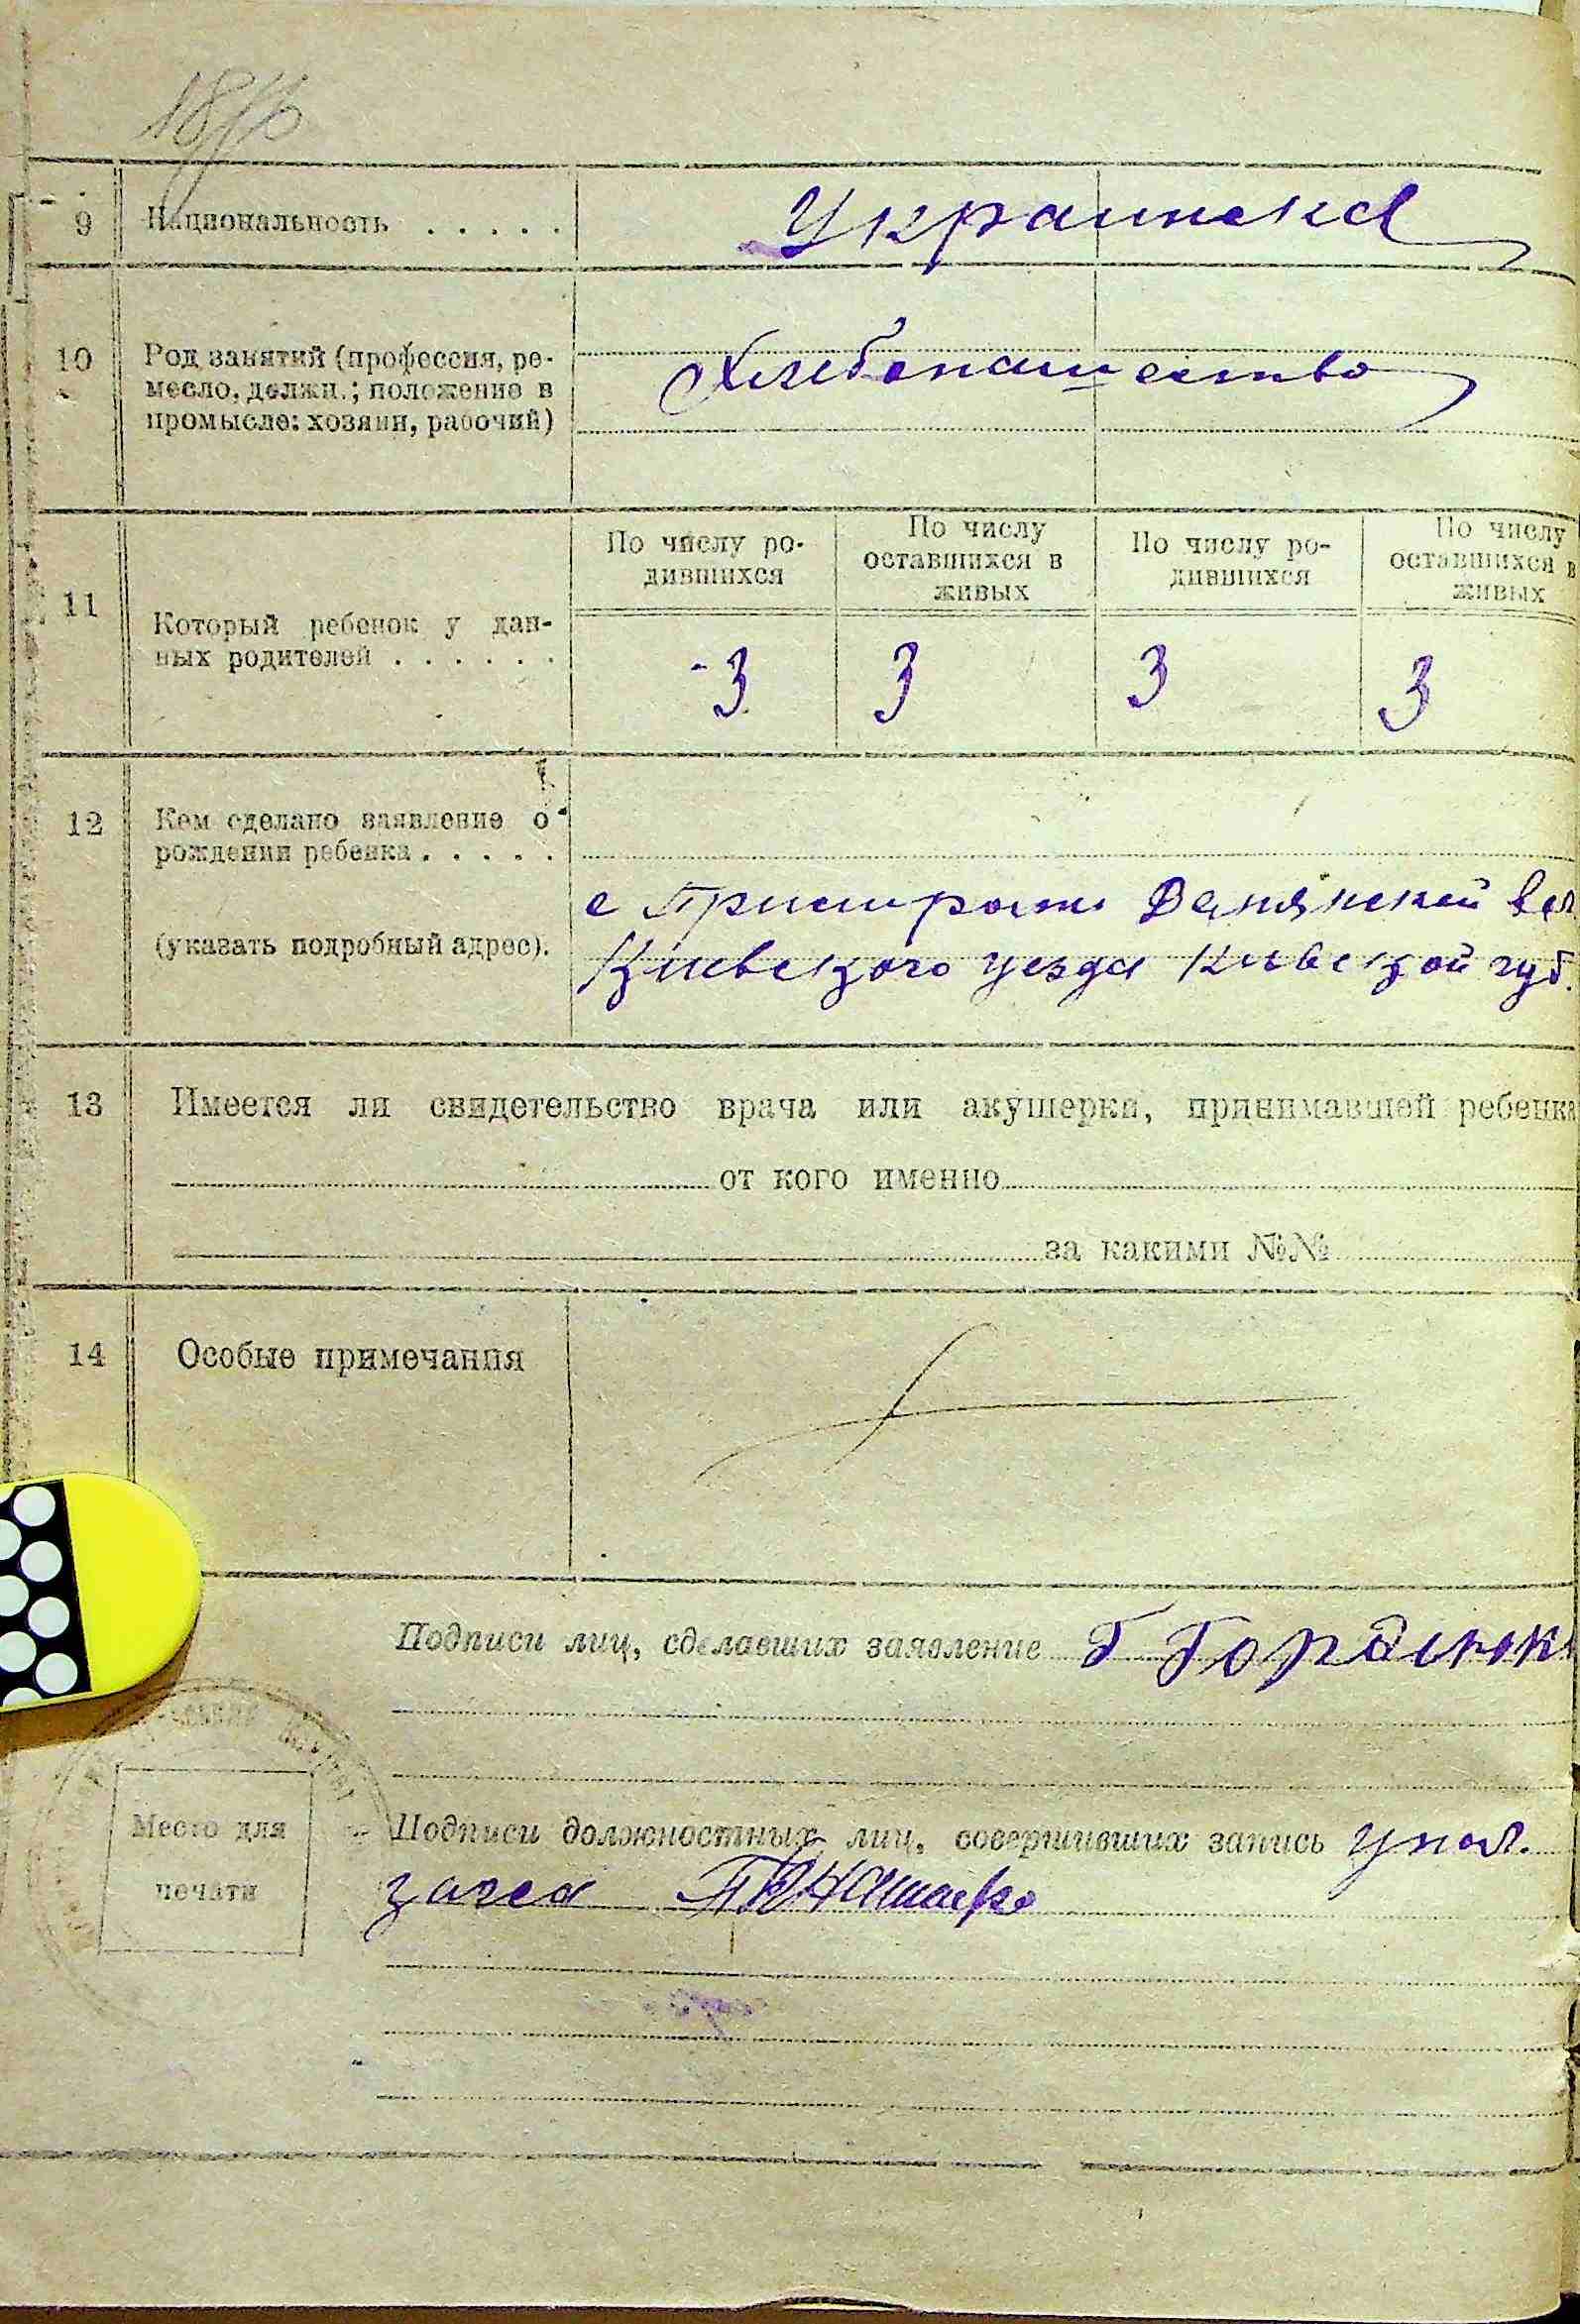 9 Национальность . . . . . Украинска
10 Род занятий (профессия, ре-
месло, должн.; положение в
промысле: хозяин, рабочий)
Хлебопашество
11 Который ребенок у дан-
ных родителей . . . . . .
По числу ро-
дившихся
По числу
оставшихся в
живых
По числу ро-
дившихся
По числу
оставшихся в
живых
3 3 3 3
12 Кем сделано заявление о
рождении ребенка . . . . .
(указать подробный адрес).
с Вол
Киевского уезда Киевской губ.
13 Имеется ли свидетельство врача или акушерки, принимавшей ребенка
от кого именно
за какими №№
14 Особые примечания
Подписи лиц, сделавших заявление Г
Место для
печати
Подписи должностных лиц, совершивших запись упол.
загса